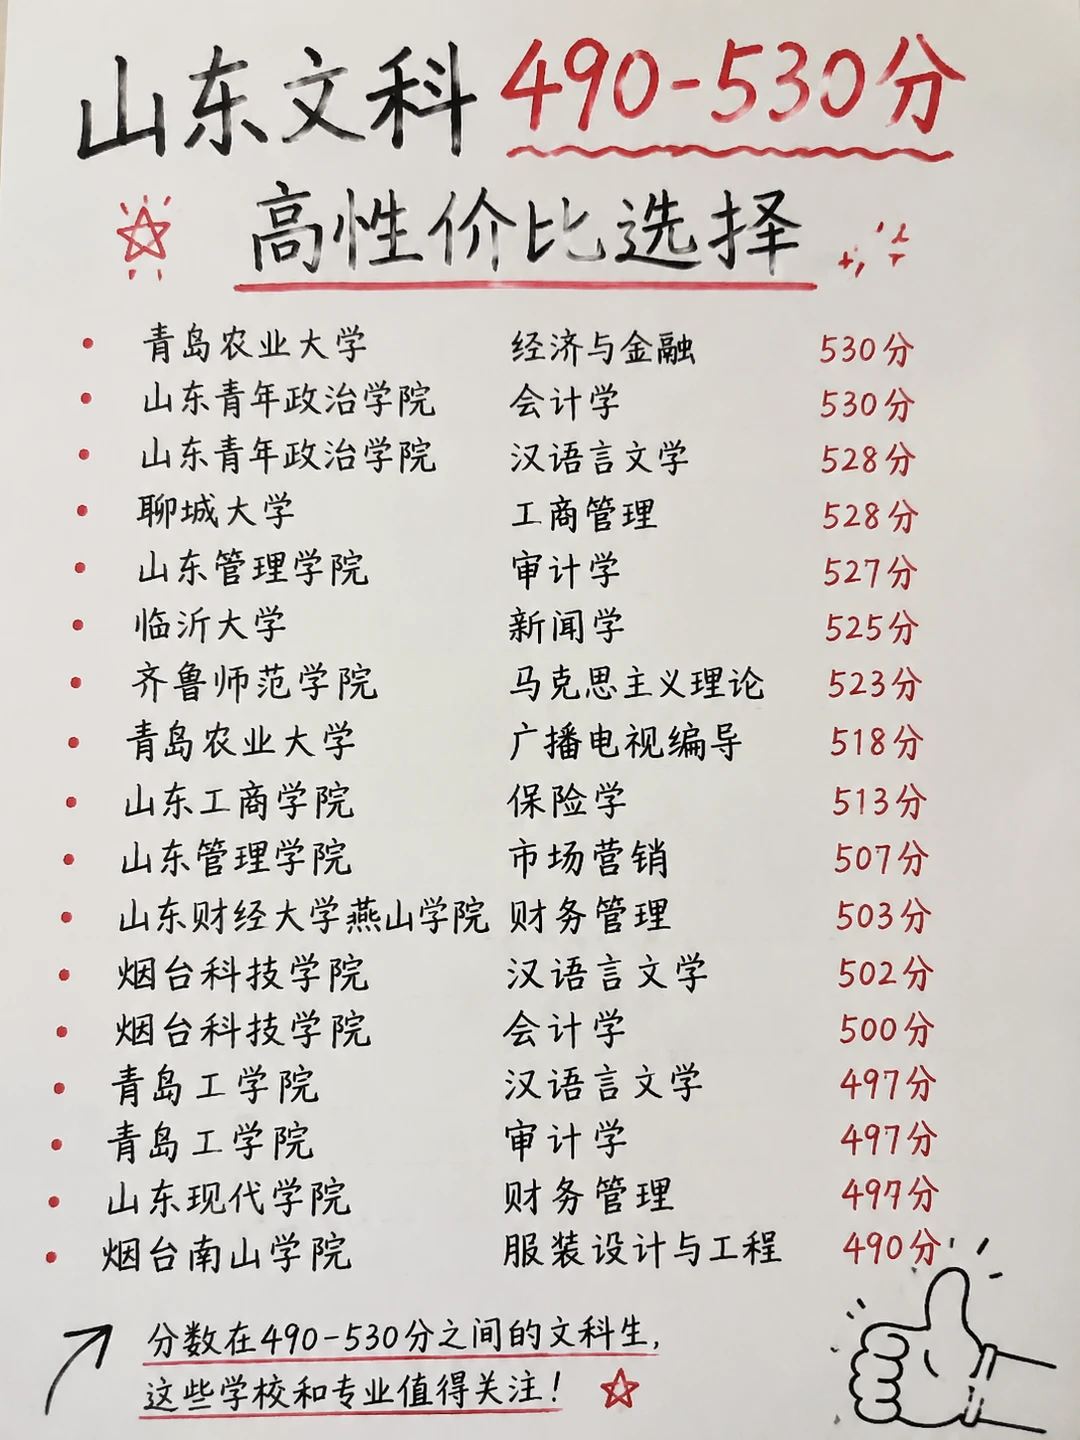 山东文科 490-530分
高性价比选择
青岛农业大学 经济与金融 530分
山东青年政治学院 会计学 530分
山东青年政治学院 汉语言文学 528分
聊城大学 工商管理 528分
山东管理学院 审计学 527分
临沂大学 新闻学 525分
齐鲁师范学院 马克思主义理论 523分
青岛农业大学 广播电视编导 518分
山东工商学院 保险学 513分
山东管理学院 市场营销 507分
山东财经大学燕山学院 财务管理 503分
烟台科技学院 汉语言文学 502分
烟台科技学院 会计学 500分
青岛工学院 汉语言文学 497分
青岛工学院 审计学 497分
山东现代学院 财务管理 497分
烟台南山学院 服装设计与工程 490分
分数在490-530分之间的文科生,
这些学校和专业值得关注!